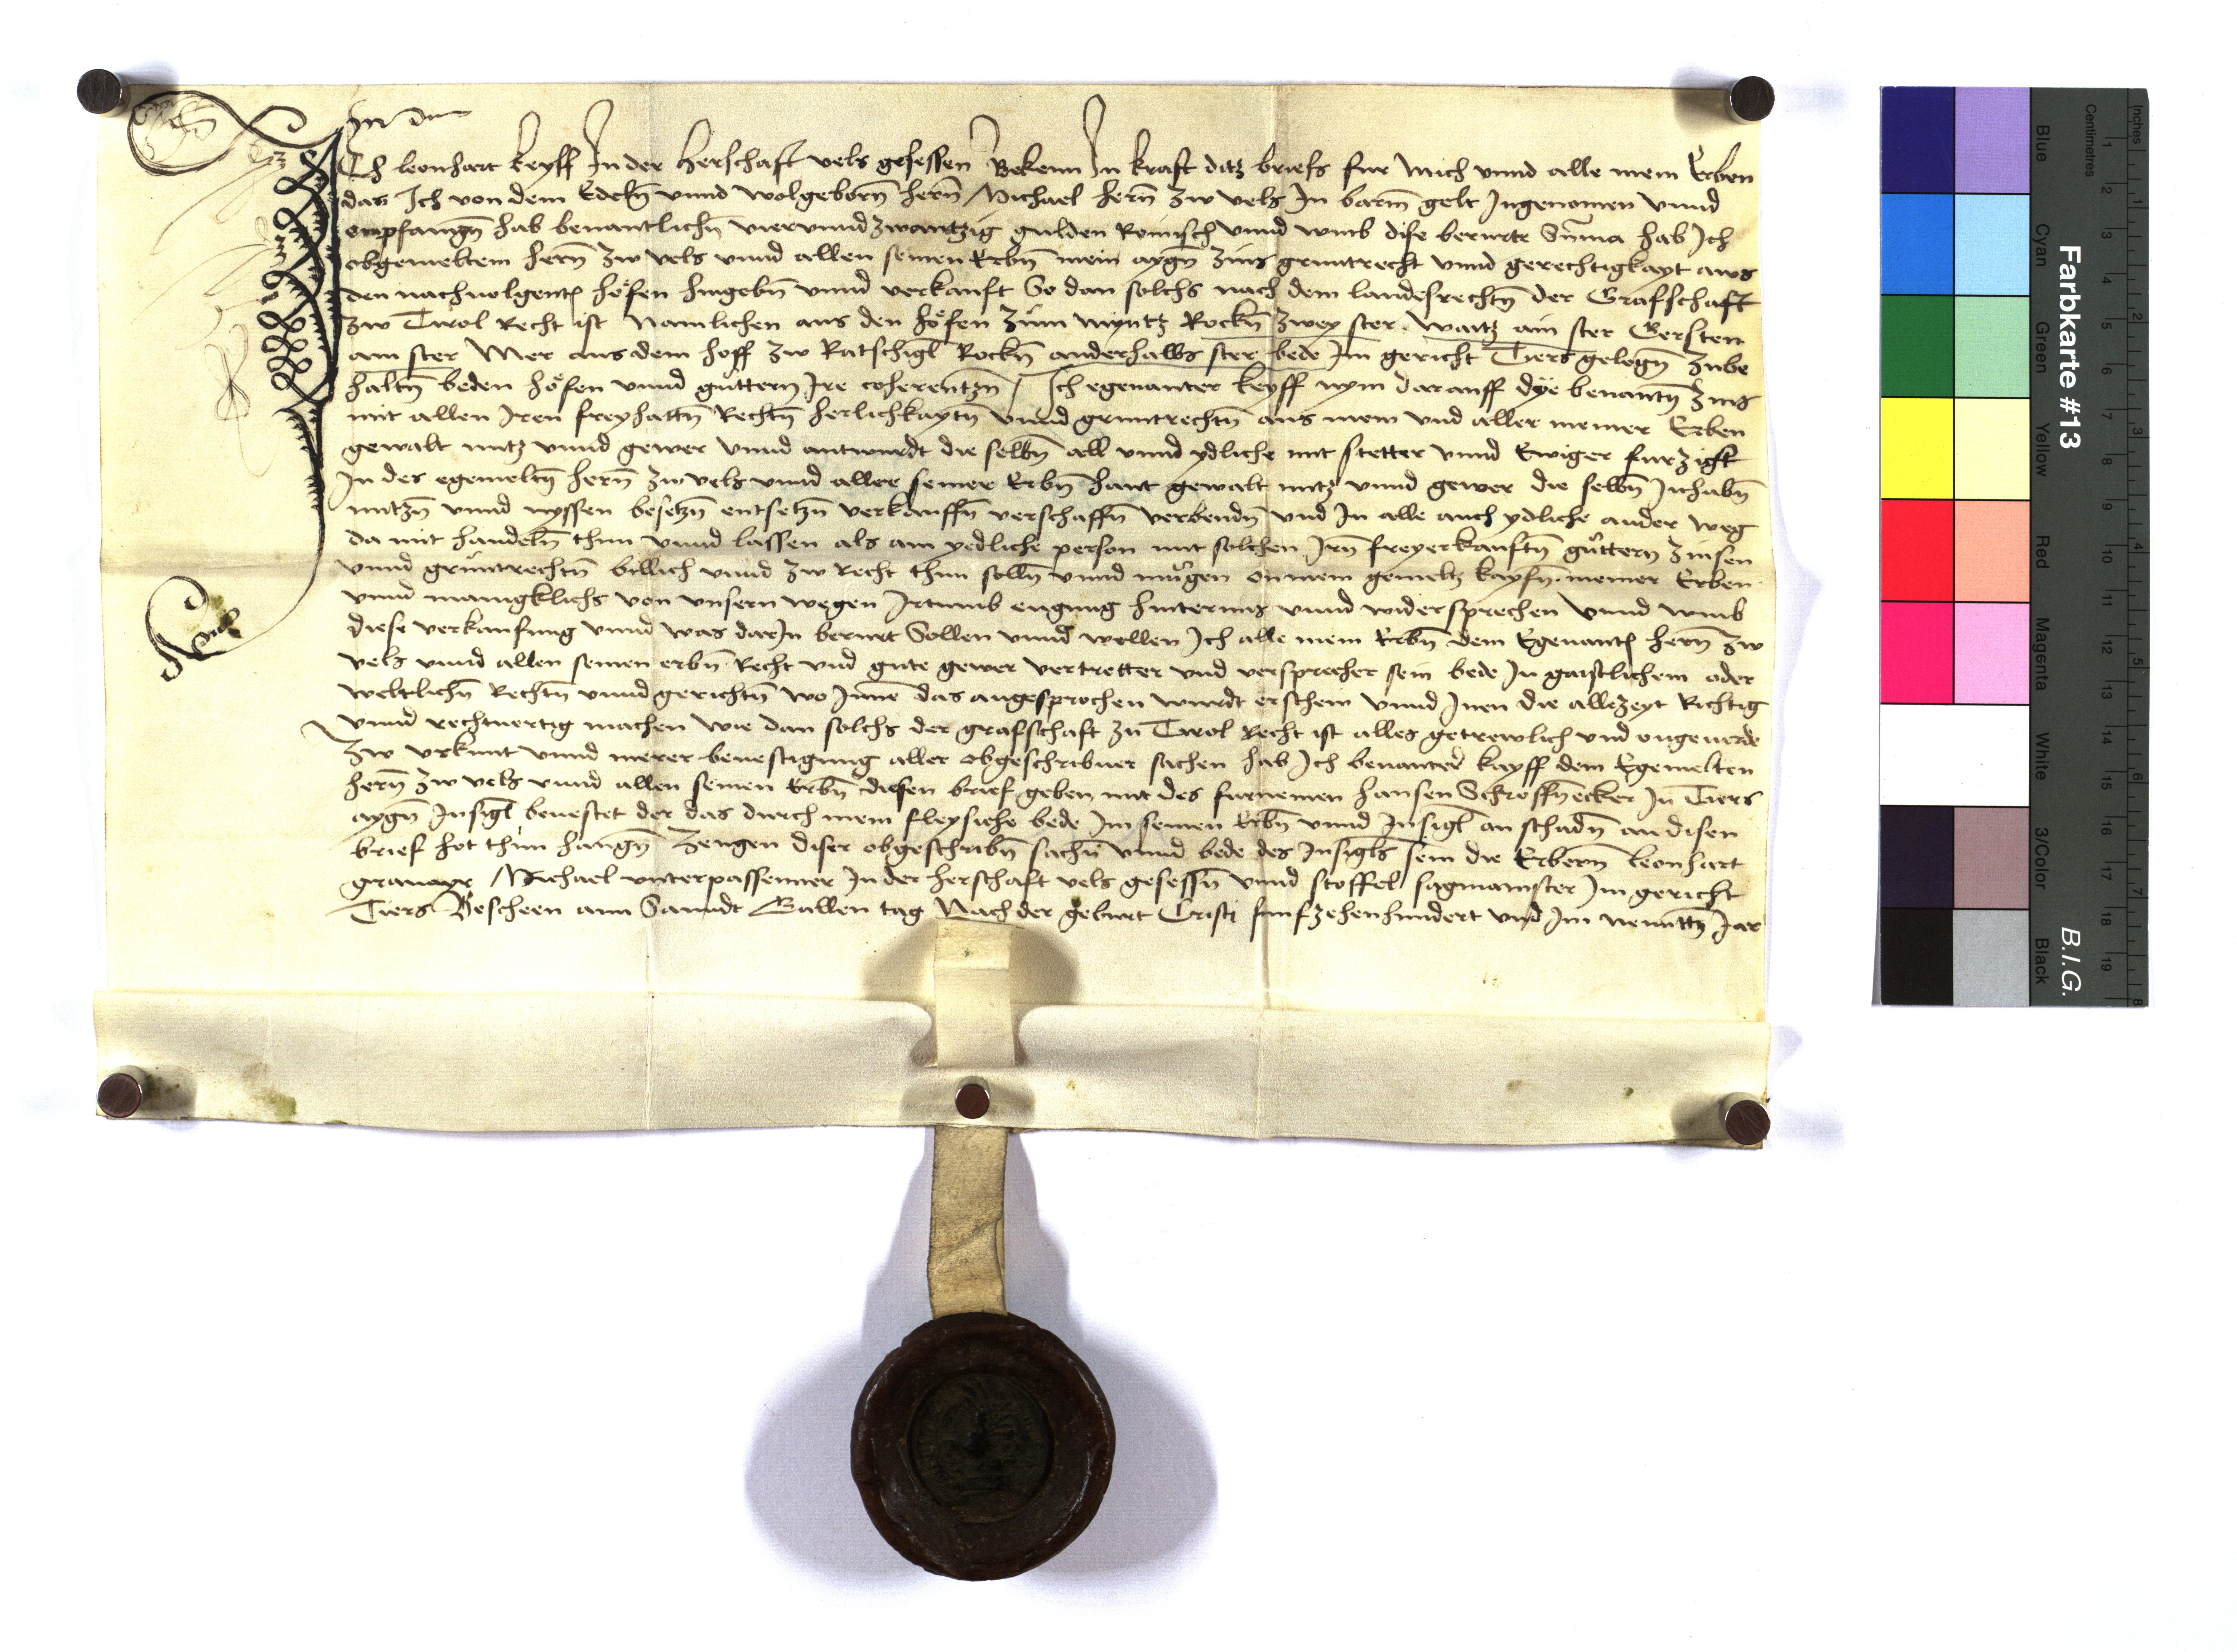 Ich leonhart keyff In der Herschaft vels gesessen Bekenn In kraft ditz briefs fur mich vnnd alle mein Erben
das Ich von dem Edeln̄ vnnd wolgeborn̄ hern̄ Michael hern̄ zw vels In barm̄ gelt Ingenomen vnnd
empfangn̄ hab benantlichn̄ viervnndzwantzig gulden Romisch vnnd vmb dise berurte Sūma hab Ich
obgemeltem hern̄ zw vels vnnd allen seinen Erbn̄ mein aygn̄ zins gruntrecht vnnd gerechtigkayt aws
den nachuolgentn̄ höfen hingebn̄ vnnd verkauft So dan solchs nach dem landesrechtn̄ der Grafschaft
zw Tirol Recht ist Namlichen aus den höfen zum Rockn̄ zwey ster waitz ain ster Gersten
ain ster Mer aus dem hoff zw Ratschigl Rockn̄ anderhalbs ster bede Im gericht Tiers gelegn̄ zube
haltn̄ beden höfen vnnd güttern Ire coherentzn̄ / Ich egenanter keyff nym darauff dye benantn̄ zins
mit allen Iren freyhaitn̄ Rechtn̄ herlichkaytn̄ vnnd gruntrechtn̄ aus mein vnd aller meiner Erben
gewalt nutz vnnd gewer vnnd antwurdt die selbn̄ all vnnd ydliche mit stetter vnnd Ewiger furzigt
In des egemeltn̄ hern̄ zw vels vnnd aller seiner Erbn̄ hant gewalt nutz vnnd gewer die selbn̄ Inhabn̄
nutzn̄ vnnd nyssen besetzn̄ entsetzn̄ verkauffn̄ verschaffn̄ verbendn̄ vnd In alle auch ydliche ander weg
da mit handeln̄ thun vnnd lassen als ain yedliche person mit solchen Irn̄ freyerkauftn̄ güttern zinsen
vnnd gruntrechtn̄ billich vnnd zw Recht thun solln̄ vnnd mügen on mein gemeltz kayfn̄ meiner Erben
vnnd manigklichs von vnsern wegen Irtumb engung hinternus vnnd widersprechen vnnd vmb
diese verkaufung vnnd was darIn berurt Sollen vnnd wellen Ich alle mein Erbn̄ dem Egenantn̄ hern̄ zw
vels vnnd allen seinen erbn̄ Recht vnd gute gewer vertretter vnd versprecher sein bede In gaistlichem oder
weltlichn̄ Rechtn̄ vnnd gerichtn̄ wo Inne das angesprochen wurdt erschein vnnd Inen die allezeyt Richtig
vnnd rechtuertig machen wie dan solchs der grafschaft zu Tirol Recht ist alles getrewlich vnd ongeuerde
zw vrkunt vnnd merer beuestigung aller obgeschribner sachen hab Ich benanter kayff dem Egemelten
hern̄ zw vels vnnd allen seinen Erbn̄ diesen brief geben mit des furnemen hansen Schroffnecker In Tiers
aygn̄ Insigl beuestet der das durch mein fleysiche bede Im seinen Erbn̄ vnnd Insigl an schadn̄ an disen
brief hot thun hangn̄ zeugen diser obgeschribn̄ sachn̄ vnnd bede des Insigls sein die Erbern̄ leonhart
gramayr Michael vnterpassenner In der herschaft vels gesessn̄ vnnd stoffel sagmaister Im gericht
Tiers Bescheen ann Sanndt Gallen tag Nach der geburt Cristi funfzehenhundert vnd Im neuntn̄ Jar
Farbkarte #13
B.I.G.
Inches
Centimetres
Blue
Cyan
Green
Yellow
Red
Magenta
White
3/Color
Black
1 2 3 4 5 6 7 8 9 10 11 12 13 14 15 16 17 18 19
1 2 3 4 5 6 7 8